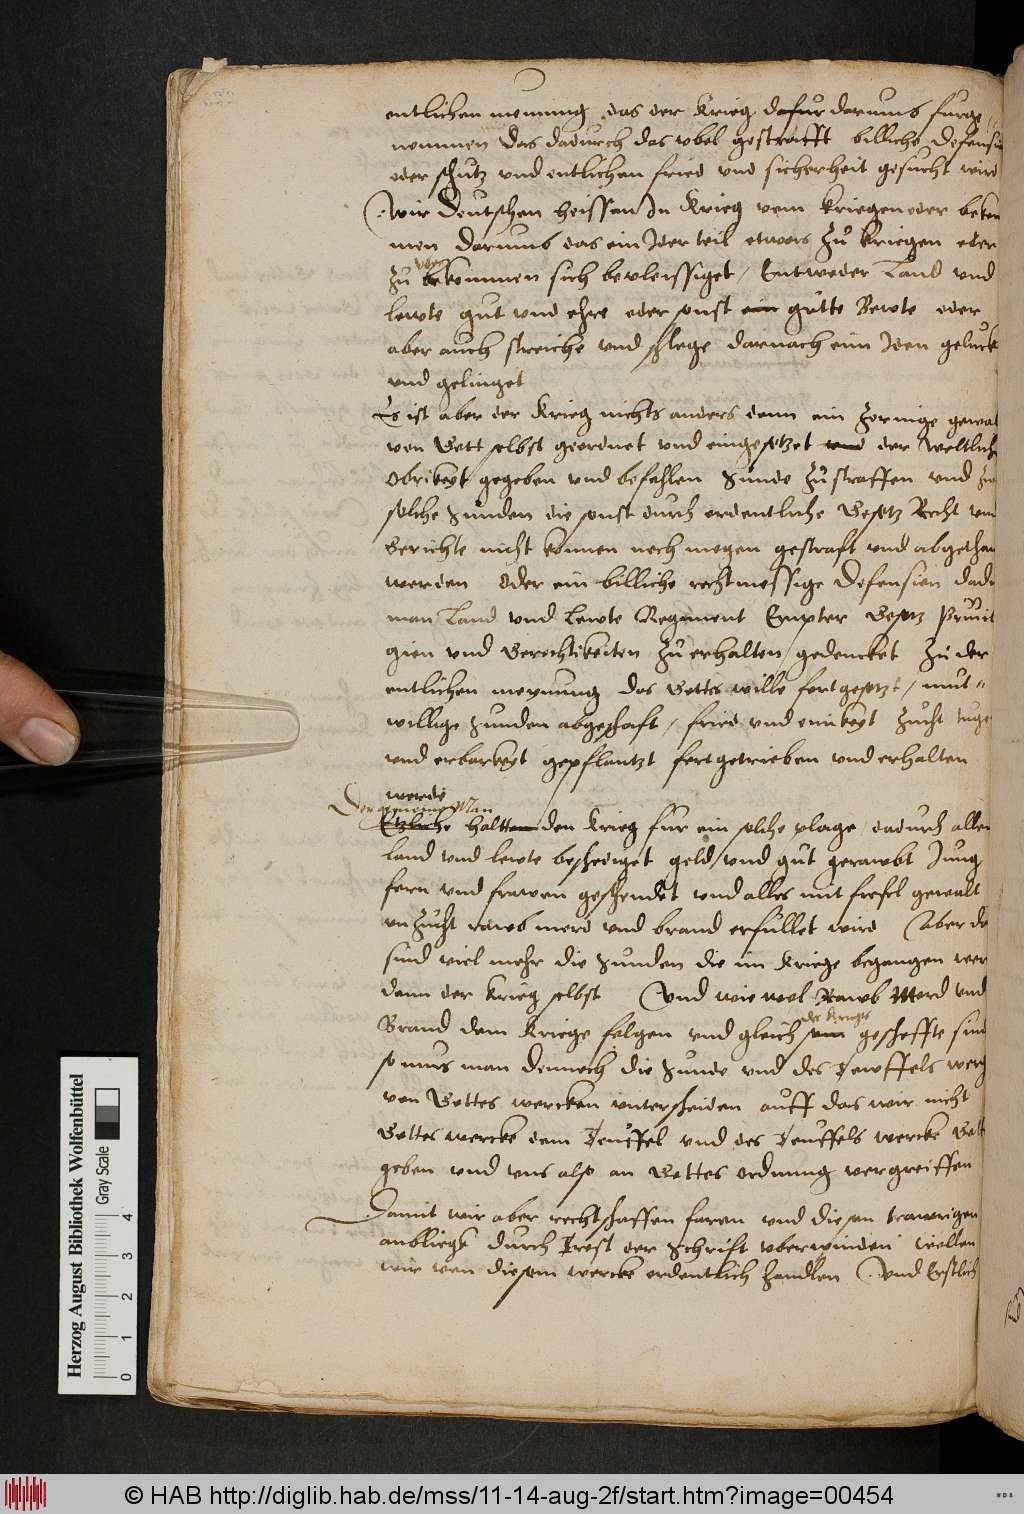 entlichen meinung das der Krieg dafur darumb furge
nommen Das dadurch das vbel gestrafft billiche Defensio
oder schutz vnd entlichen fried vnd sicherheit gesucht wird
Wir Deutschen heissen In Krieg vom kriegen oder bekom
men darumb das ein Jder teil etwas zu kriegen oder
zu bekommen sich bevleissiget / Entweder Land vnd
lewte gut vnd ehre oder sonst ein gutte Bewte oder
aber auch streiche vnd schlege darnach eim Jden geluck
vnd gelinget
Es ist aber der Krieg nichts anders denn ein zornige gewalt
von Gott selbst geordnet vnd eingesetzet vnd der Weltliche
Obrikeyt gegeben vnd befohlen Sunde zu straffen vnd zu
solche Sunden die sonst durch ordentliche Gesetz Recht vnd
Gerichte nicht konnen noch mogen gestraft vnd abgethan
werden Oder ein billiche rechtmessige Defension dadu
man Land vnd Lewte Regiment Empter Gesetz Priuile
gien vnd Gerechtikeiten zu erhalten gedencket Zu der
entlichen meynung das Gottes wille fortgesetzt / mut=
willige Sunden abgeschaft / fried vnd einikeyt zucht tuge
vnd erbarkeyt gepflantzt fortgetrieben vnd erhalten
werde
Der gemeine Man
Etzliche haltten den Krieg fur ein solche plage dadurch allen
Land vnd lewte beschediget geld vnd gut gerawbt Jung
fern vnd frawen geschendet vnd alles mit frefel gewalt
vnzucht rawb mord vnd brand erfullet wird Aber da
sind viel mehr die Sunden die im Kriege begangen wer
denn der Krieg selbst Vnd wie wol Rawb Mord vnd
des Krieges
Brand dem Kriege folgen vnd gleich sein gescheffte sind
so mus man dennoch die Sunde vnd des Tewffels werck
von Gottes wercken vnterscheiden auff das wir nicht
Gottes wercke dem Teuffel vnd des Teuffels wercke Gott
geben vnd vns also an Gottes ordnung vergreiffen
Damit wir aber rechtschaffen faren vnd diesen trawrigen
anblick durch Trost der Schrift vberwinden wollen
wir von diesem wercke ordentlich handlen Vnd Erstlich
Herzog August Bibliothek Wolfenbüttel
Gray Scale
0 1 2 3 4
© HAB http://diglib.hab.de/mss/11-14-aug-2f/start.htm?image=00454